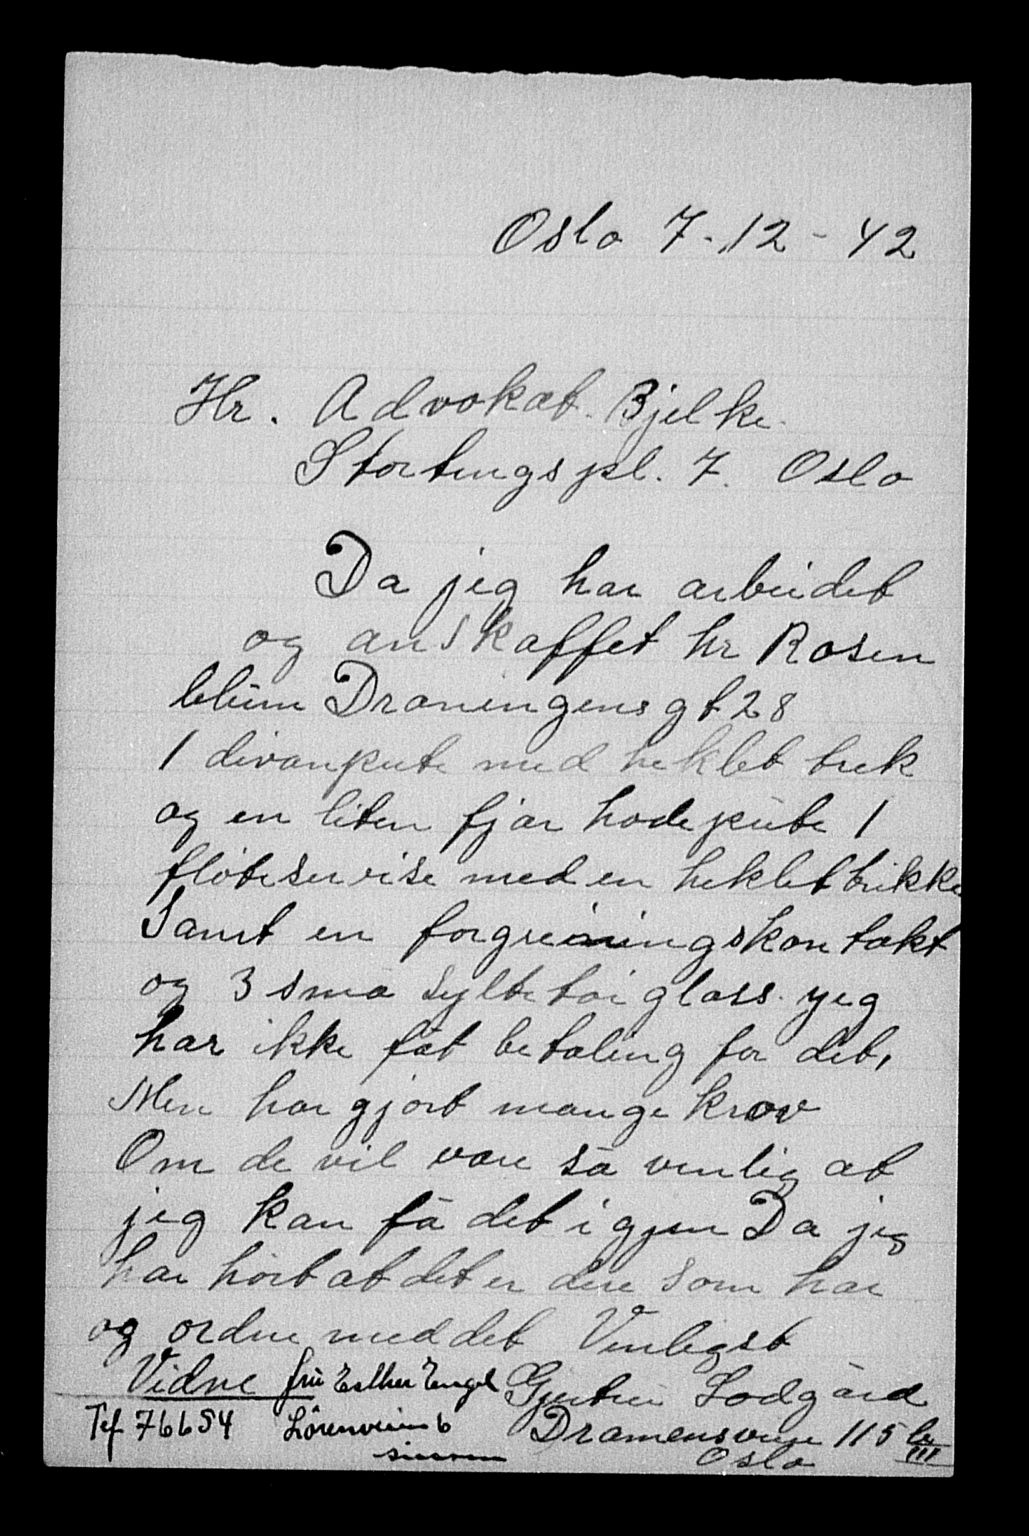 Oslo 7-12-42
Hr. Advokat Bjelke
Stortingspl. 7. Oslo
Da jeg har arbeidet
og anskaffet hr Rosen
blum Droningensgt 28
1 divanpute med heklet trek
og en liten fjær hodepute 1
fløteservise med en heklet brikke
Samt en forgreiningskontakt
og 3 små syltetøi glass. jeg
har ikke fåt betaling for det,
Men har gjort mange krav
Om de vil være så venlig at
jeg kan få det igjen Da jeg
har hørt at det er dere som har
og ordne med det Venligst
Vidne fru Esther Engel
Lodgård
Tef 76654 Lørenveien 6
Dramensveien 115
Oslo